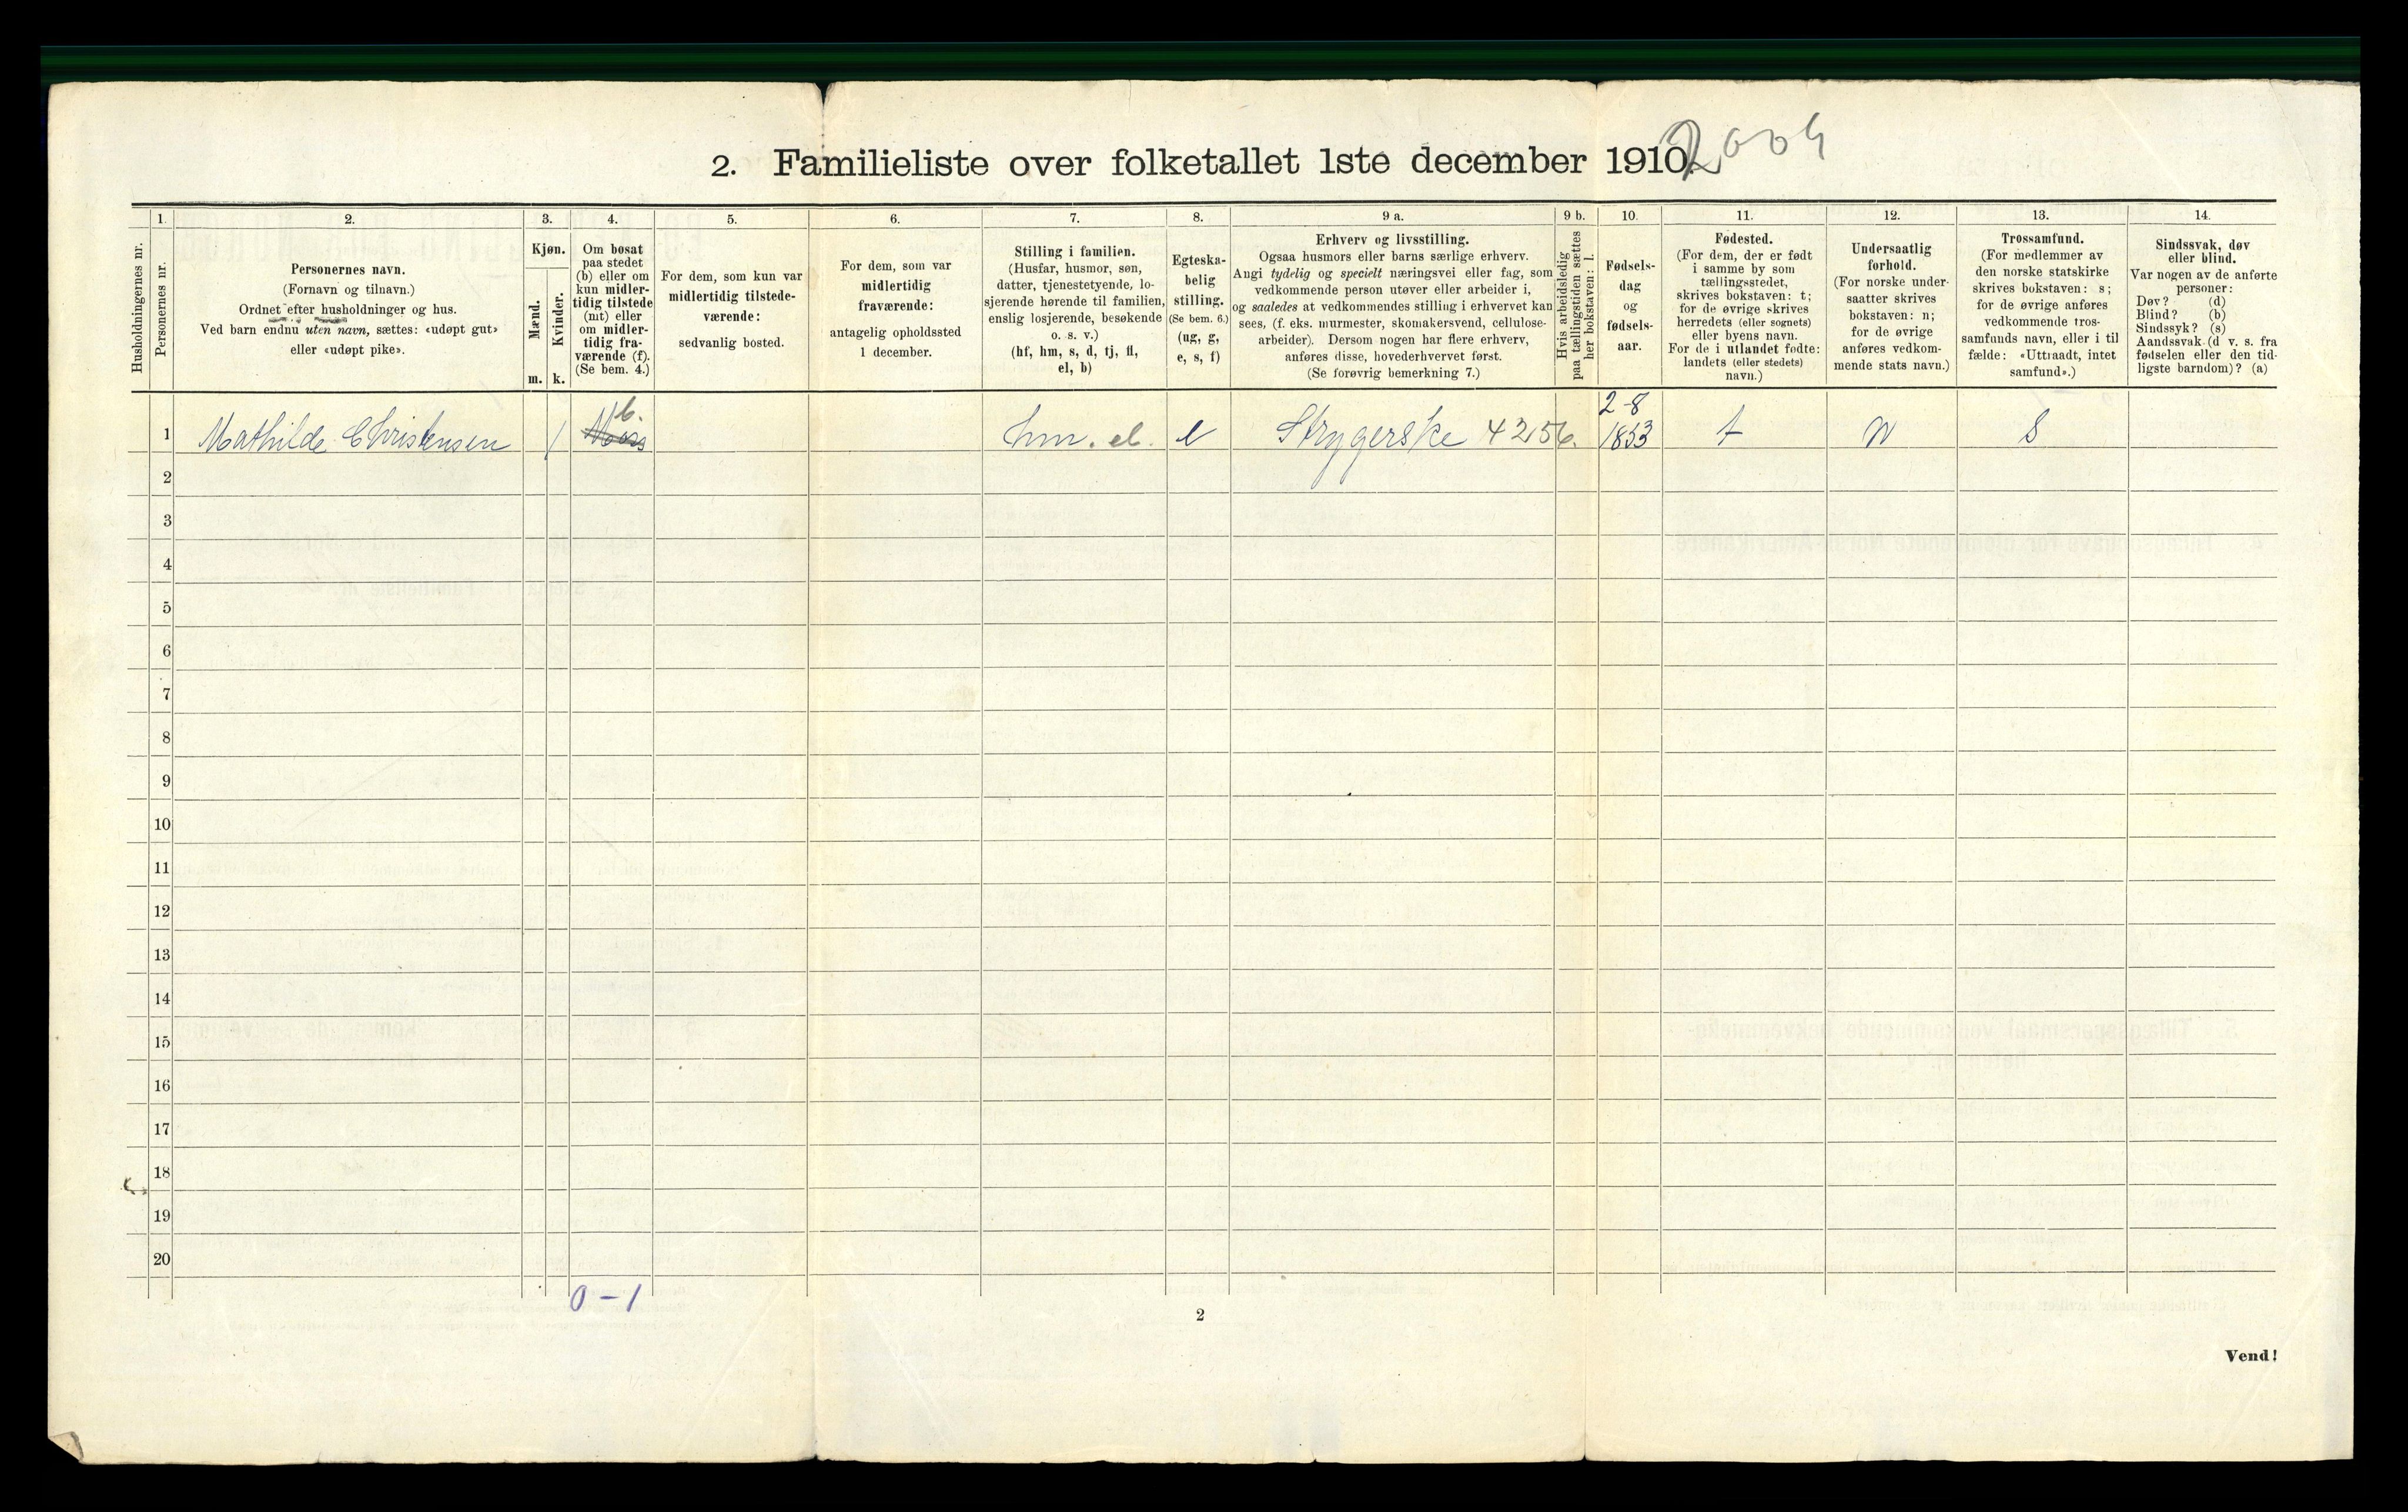 2. Familieliste over folketallet 1ste december 1910.
2004
1. 2. 3. 4. 5. 6. 7. 8. 9 a. 9 b. 10. 11. 12. 13. 14.
Husholdningernes nr.
Personernes nr.
Personernes navn.
(Fornavn og tilnavn.)
Ordnet efter husholdninger og hus.
Ved barn endnu uten navn, sættes: «udøpt gut»
eller «udøpt pike».
Kjøn.
Mænd.
Kvinder.
m. k.
Om bosat
paa stedet
(b) eller om
kun midler-
tidig tilstede
(mt) eller
om midler-
tidig fra-
værende (f).
(Se bem. 4.)
For dem, som kun var
midlertidig tilstede-
værende:
sedvanlig bosted.
For dem, som var
midlertidig
fraværende:
antagelig opholdssted
1 december.
Stilling i familien.
(Husfar, husmor, søn,
datter, tjenestetyende, lo-
sjerende hørende til familien,
enslig losjerende, besøkende
o. s. v.)
(hf, hm, s, d, tj, fl,
el, b)
Egteska-
belig
stilling.
(Se bem. 6.)
(ug, g,
e, s, f)
Erhverv og livsstilling.
Ogsaa husmors eller barns særlige erhverv.
Angi tydelig og specielt næringsvei eller fag, som
vedkommende person utøver eller arbeider i,
og saaledes at vedkommendes stilling i erhvervet kan
sees, (f. eks. murmester, skomakersvend, cellulose-
arbeider). Dersom nogen har flere erhverv,
anføres disse, hovederhvervet først.
(Se forøvrig bemerkning 7.)
Hvis arbeidsledig
paa tællingstiden sættes
her bokstaven: l.
Fødsels-
dag
og
fødsels-
aar.
Fødested.
(For dem, der er født
i samme by som
tællingsstedet,
skrives bokstaven: t;
for de øvrige skrives
herredets (eller sognets)
eller byens navn.
For de i utlandet fødte:
landets (eller stedets)
navn.)
Undersaatlig
forhold.
(For norske under-
saatter skrives
bokstaven: n;
for de øvrige
anføres vedkom-
mende stats navn.)
Trossamfund.
(For medlemmer av
den norske statskirke
skrives bokstaven: s;
for de øvrige anføres
vedkommende tros-
samfunds navn, eller i til
fælde: «Uttraadt, intet
samfund».)
Sindssvak, døv
eller blind.
Var nogen av de anførte
personer:
Døv? (d)
Blind? (b)
Sindssyk? (s)
Aandssvak (d. v. s. fra
fødselen eller den tid-
ligste barndom)? (a)
b. 2-8
1 Mathilde Christensen 1 Moss hm. el. e Strygerske 4256. 1853 t n S
2
3
4
5
6
7
8
9
10
11
12
13
14
15
16
17
18
19
20
0 - 1
2
Vend!